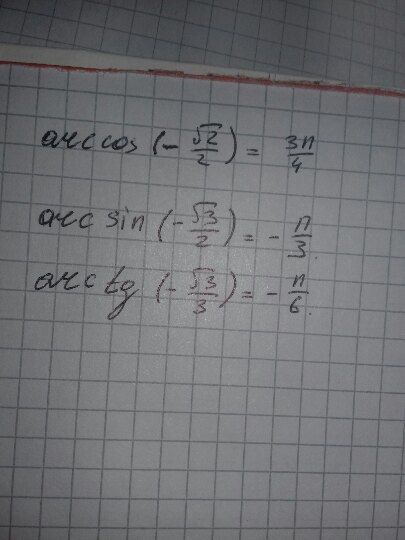 arccos (-√2/2) = 3π/4
arc sin (-√3/2) = -π/3.
arc tg (-√3/3) = -π/6.